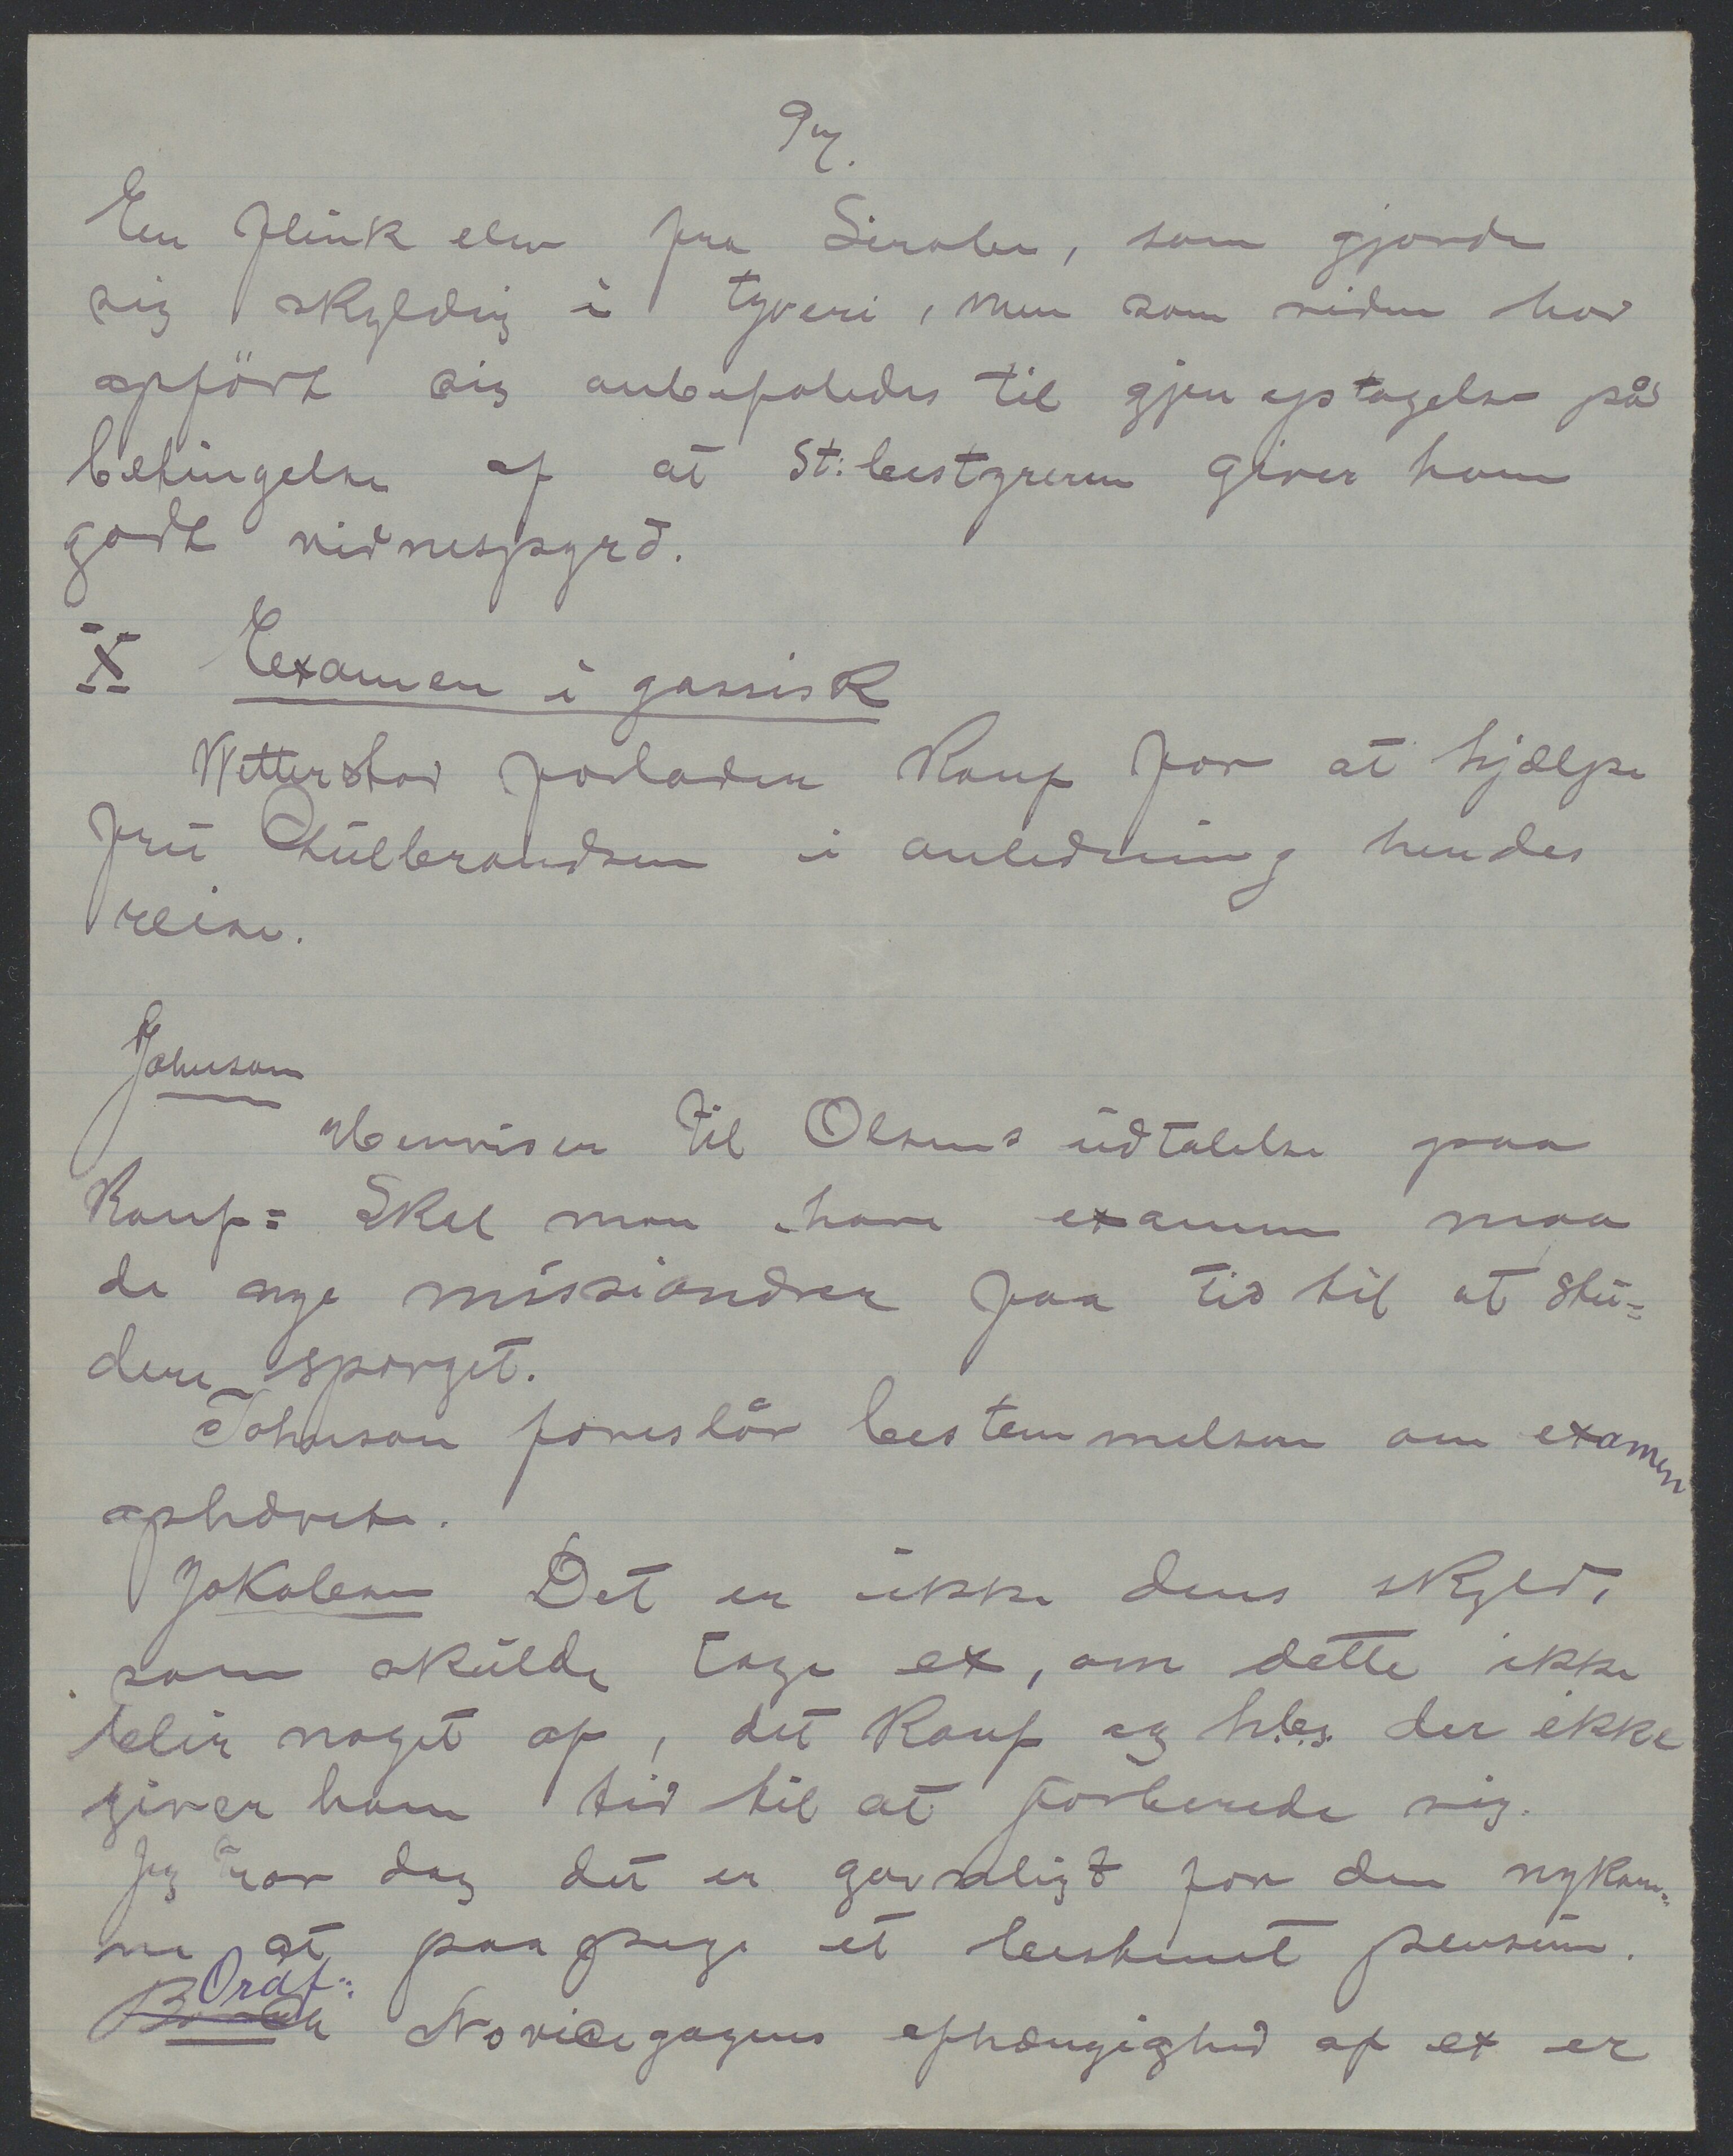 En flink elev fra Sirabe, som gjorde
sig skyldig i tyveri, men som siden har
opført sig anbefaledes til gjenoptagelse på
betingelse af at St: bestyreren giver ham
godt vidnespyrd.
X Examen i gassisk
Wetterstad forlader Konf for at hjælpe
fru Gulbrandsen i anledning hendes
reise.
Johnson
Henviser til Olsens udtalelse paa
Konf: Skal man have examen maa
de nye missionærer faa tid til at stu=
dere sproget.
Johnson foreslår bestemmelsen om examen
ophævet.
Jakobsen Det er ikke dens skyld,
som skulde tage ex, om dette ikke
blir noget af, det Konf og h.b.s. der ikke
giver ham tid til at forberede sig.
Jeg tror dog det er gavnligt for den nykom=
ne at paa et bestemt pensum.
Ordf: Novicegagens afhængighed af ex er